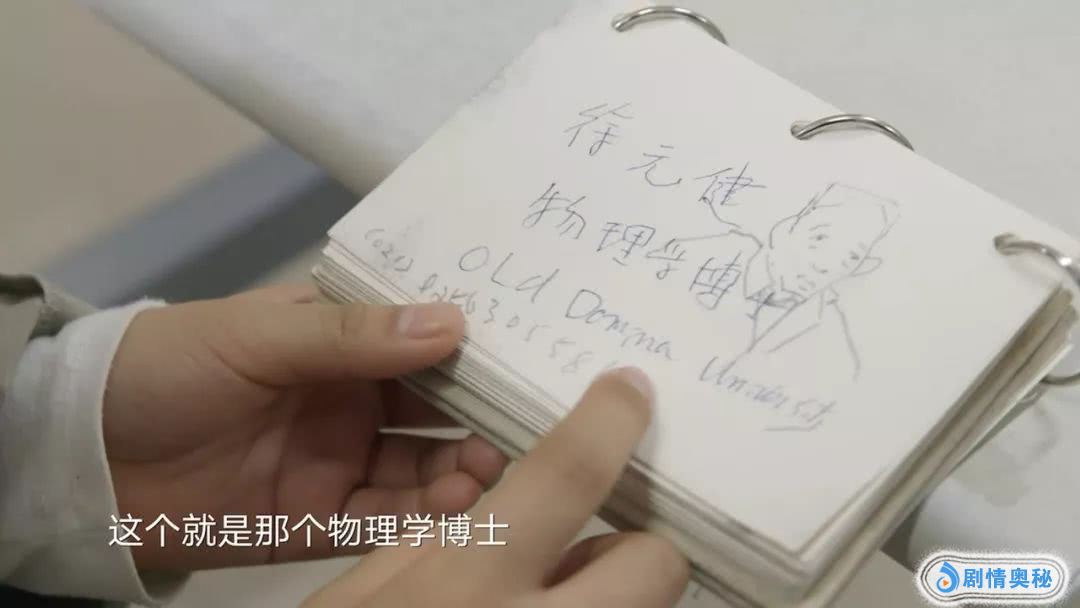 徐元健
物理学博士
OLd Domina Universit
这个就是那个物理学博士
剧情奥秘